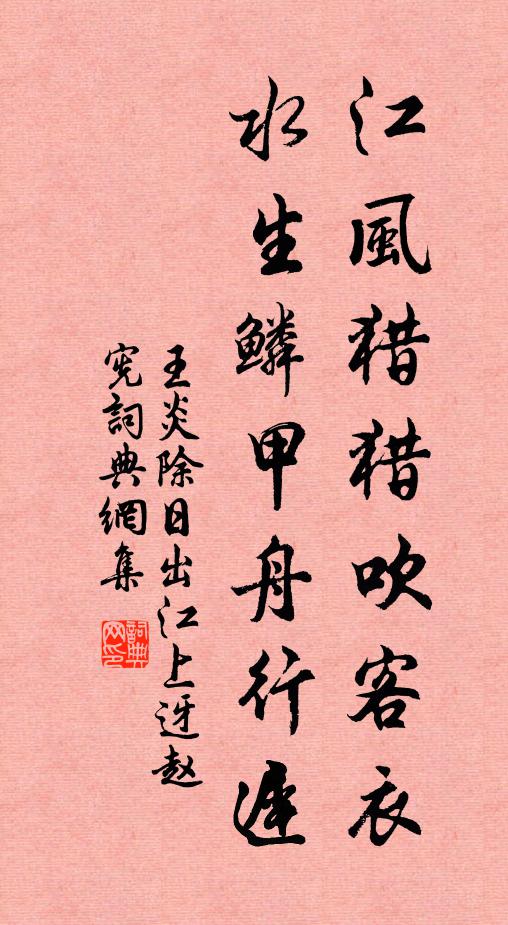 江風猎猎吹客衣
水生鱗甲舟行遲
王炎除日出江上迓赵
宪詞典網集
詞典网印